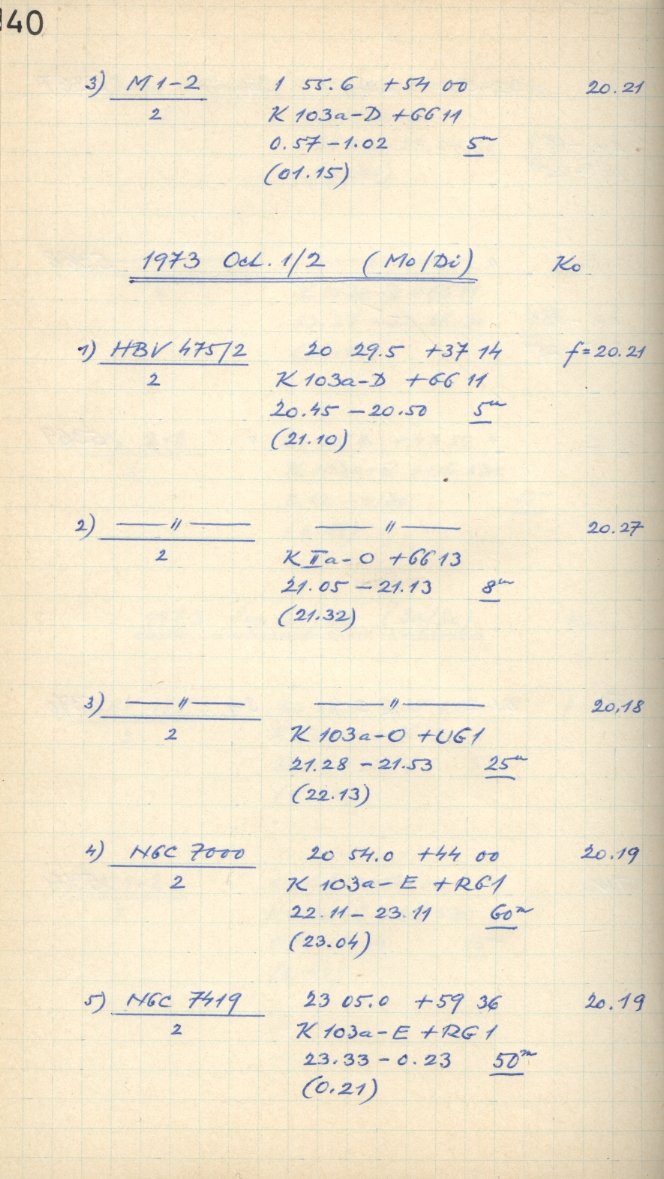 140
3) M1-2 1 55.6 +54 00 20.21
2 K 103a-D +GG 11
0.57 - 1.02 5m
(01.15)
1973 Oct. 1/2 (Mo/Di) Ko
1) HBV 475/2 20 29.5 +37 14 f = 20.21
2 K 103a-D +GG 11
20.45 - 20.50 5m
(21.10)
2) —〃— —〃— 20.27
2 K IIa-O +GG 13
21.05 - 21.13 8m
(21.32)
3) —〃— —〃— 20.18
2 K 103a-O +UG1
21.28 - 21.53 25m
(22.13)
4) NGC 7000 20 54.0 +44 00 20.19
2 K 103a-E +RG1
22.11 - 23.11 60m
(23.04)
5) NGC 7419 23 05.0 +59 36 20.19
2 K 103a-E +RG1
23.33 - 0.23 50m
(0.21)